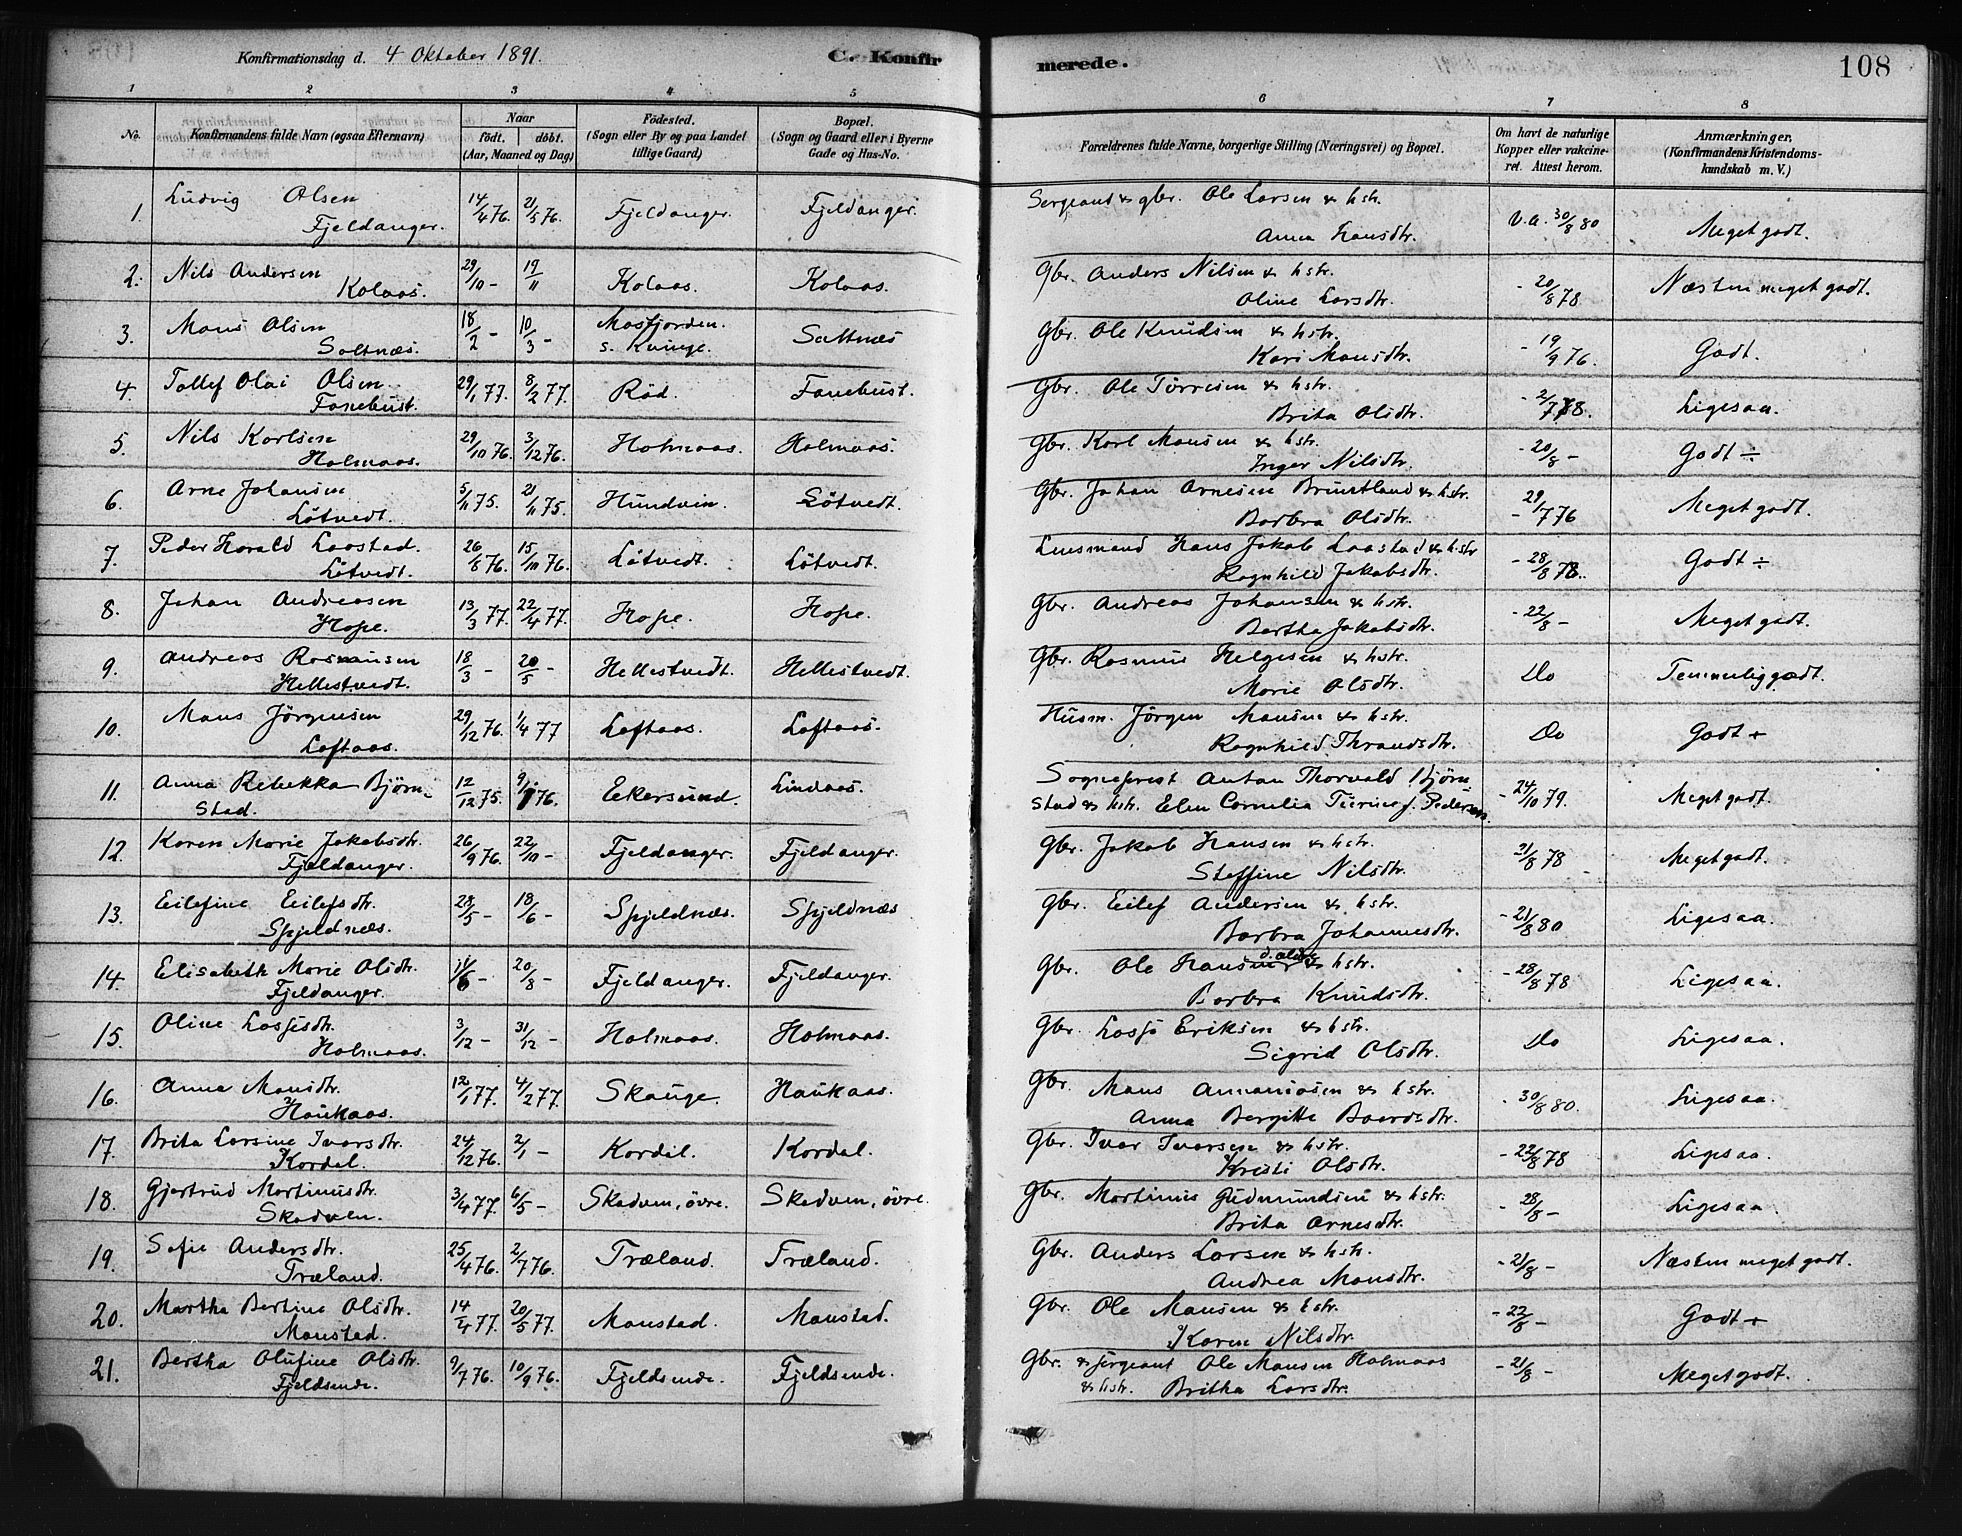 Konfirmationsdag d. 4 Oktober 1891.
C. Konfirmerede.
108
1 2 3 4 5 6 7 8
No. | Konfirmandens fulde Navn (ogsaa Efternavn) | Naar født. døbt. (Aar, Maaned og Dag) | Fødested. (Sogn eller By og paa Landet tillige Gaard) | Bopæl. (Sogn og Gaard eller i Byerne Gade og Hus-No. | Forældrenes fulde Navne, borgerlige Stilling (Næringsvei) og Bopæl. | Om havt de naturlige Kopper eller vakcineret. Attest herom. | Anmærkninger. (Konfirmandens Kristendomskundskab m. V.)
1. Ludvig Olsen Fjeldanger. | 14/4 76. | 21/5 76. | Fjeldanger. | Fjeldanger. | Sergeant & gbr. Ole Larsen & hstr. Anna Hansdtr. | v.a. 30/8 80 | Meget godt.
2. Nils Andersen Kolaas. | 29/10 - | 19/11 | Kolaas. | Kolaas. | Gbr. Anders Nilsen & hstr. Oline Larsdtr. | - 20/8 78 | Næsten meget godt.
3. Mons Olsen Saltnæs. | 18/2 - | 10/3 - | Masfjorden. s. Kvinge. | Saltnæs | Gbr. Ole Knudsen & hstr. Kari Monsdtr. | - 19/9 76. | Godt.
4. Tollef Olai Olsen Fanebust. | 29/1 77. | 8/2 77. | Röd. | Fanebust. | Gbr. Ole Torresen & hstr. Brita Olsdtr. | - 2/7 78. | Ligesaa.
5. Nils Karlsen Holmaas. | 29/10 76. | 3/12 76. | Holmaas. | Holmaas. | Gbr. Karl Monsen & hstr. Inger Nilsdtr. | - 20/8 - | Godt ÷
6. Arne Johansen Lötvedt. | 5/11 75. | 21/11 75. | Hundvin. | Lötvedt. | Gbr. Johan Arnesen Bruntland & hstr. Barbra Olsdtr. | - 29/7 76 | Meget godt.
7. Peder Harald Laastad. Lötvedt. | 26/8 76. | 15/10 76. | Lötvedt. | Lötvedt. | Lensmand Hans Jakob Laastad & hstr Ragnhild Jakobsdtr. | - 28/8 78. | Godt ÷
8. Johan Andreasen Hope. | 13/3 77. | 22/4 77. | Hope. | Hope. | Gbr. Andreas Johansen & hstr. Bertha Jakobsdtr. | - 22/8 - | Meget godt.
9. Andreas Rasmusen Hellestvedt. | 18/3 - | 20/5 - | Hellestvedt. | Hellestvedt. | Gbr. Rasmus Helgesen & hstr. Marie Olsdtr. | Do | Temmelig godt.
10. Mons Jörgensen Loftaas. | 29/12 76. | 1/4 77 | Loftaas. | Loftaas. | Husm. Jörgen Monsen & hstr. Ragnhild Thrandsdtr. | Do | Godt +
11. Anna Rebekka Björnstad. | 12/12 75. | 9/1 76. | Ekersund. | Lindaas. | Sogneprest Anton Thorvald Björnstad & hstr. Elen Cornelia Tierine f. Pedersen. | - 24/10 79. | Meget godt.
12. Karen Marie Jakobsdtr. Fjeldanger. | 26/9 76. | 22/10 - | Fjeldanger. | Fjeldanger. | Gbr. Jakob Hansen & hstr. Steffine Nilsdtr. | - 21/8 78 | Meget godt.
13. Eilefine Eilefsdtr. Spjeldnæs. | 28/5 - | 18/6 - | Spjeldnæs. | Spjeldnæs | Gbr. Eilef Andersen & hstr. Barbra Johannesdtr. | - 21/8 80 | Ligesaa.
14. Elisabeth Marie Olsdtr. Fjeldanger. | 11/6 - | 20/8 - | Fjeldanger. | Fjeldanger. | Gbr. Ole Hansen d. ældre & hstr. Barbra Knudsdtr. | - 28/8 78 | Ligesaa.
15. Oline Lassesdtr. Holmaas. | 3/12 - | 31/12 - | Holmaas. | Holmaas. | Gbr. Lasse Eriksen & hstr. Sigrid Olsdtr. | Do | Ligesaa.
16. Anna Monsdtr. Haukaas. | 12/1 77. | 4/2 77. | Skauge. | Haukaas. | Gbr. Mons Annaniasen & hstr. Anna Bergitte Baardsdtr. | - 30/8 80. | Ligesaa.
17. Brita Larsine Ivarsdtr. Kordal. | 24/12 76. | 2/1 - | Kordal. | Kordal. | Gbr. Ivar Ivarsen & hstr. Kristi Olsdtr. | - 22/8 78 | Ligesaa.
18. Gjertrud Martinusdtr. Skodven. | 3/4 77. | 6/5 - | Skodven, övre. | Skodven, övre. | Gbr. Martinus Gudmundsen & hstr. Brita Arnesdtr. | - 28/8 - | Ligesaa.
19. Sofie Andersdtr. Træland. | 25/4 76. | 2/7 76. | Træland. | Træland. | Gbr. Anders Larsen & hstr. Andrea Monsdtr. | - 21/8 - | Næsten meget godt.
20. Martha Bertine Olsdtr. Monstad. | 14/4 77. | 20/5 77. | Monstad. | Monstad. | Gbr. Ole Monsen & hstr. Karen Nilsdtr. | - 22/8 - | Godt +
21. Bertha Olufine Olsdtr. Fjeldsende. | 9/7 76. | 10/9 76. | Fjeldsende. | Fjeldsende. | Gbr. & sergeant Ole Monsen Holmaas & hstr. Britha Larsdtr. | - 21/8 - | Meget godt.